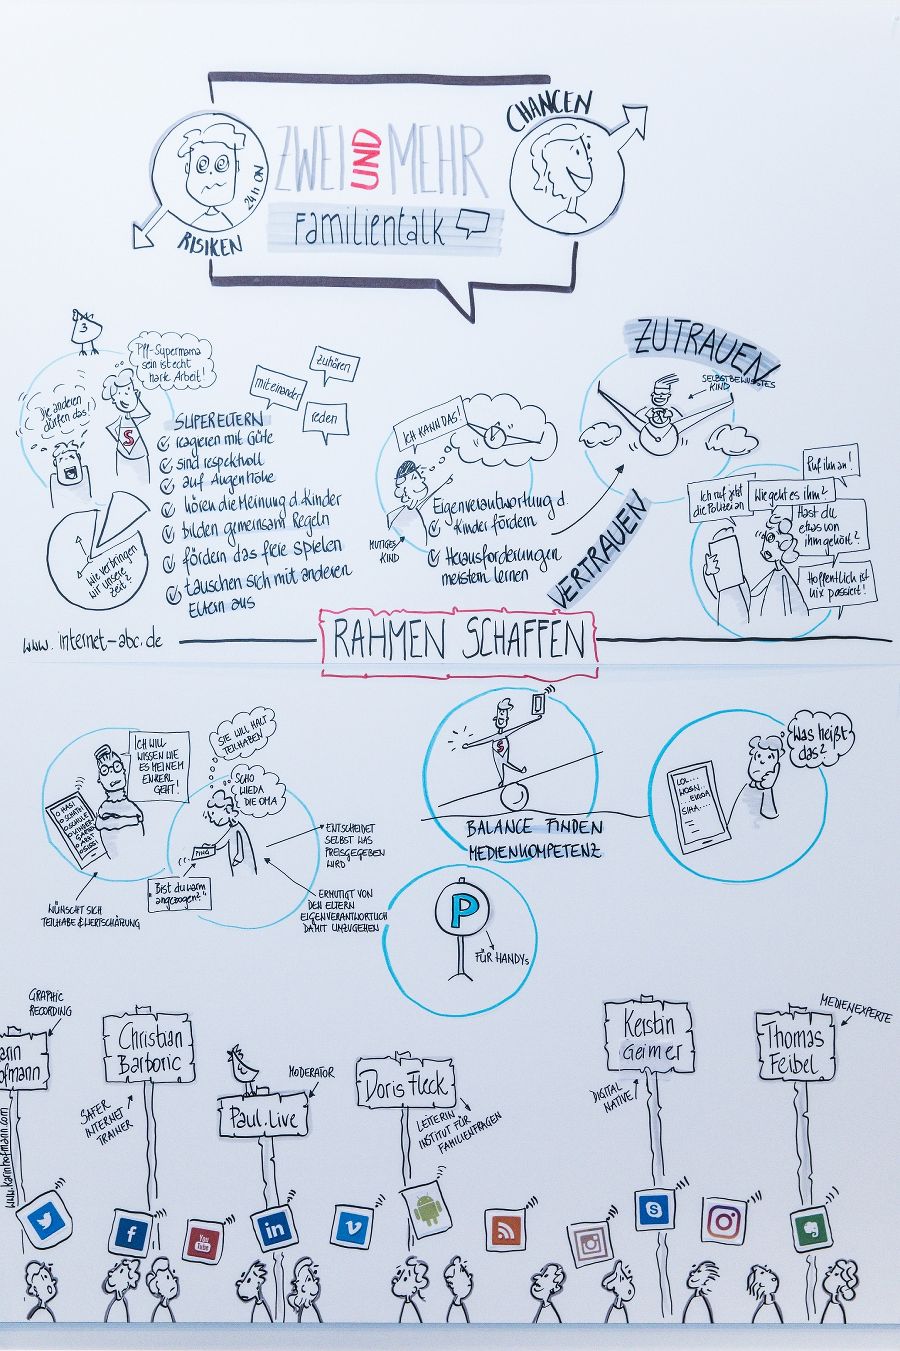 CHANCEN
ZWEI UND MEHR
24h ON
Familientalk
RISIKEN
ZUTRAUEN
3
Pff-Supermama
sein ist echt
harte Arbeit!
Die anderen
dürfen das!
S
zuhören
miteinander
reden
SUPERELTERN
reagieren mit Güte
sind respektvoll
auf Augenhöhe
hören die Meinung d. Kinder
bilden gemeinsam Regeln
fördern das freie Spielen
tauschen sich mit anderen
Eltern aus
Wie verbringen
wir unsere
Zeit?
ICH KANN DAS!
MUTIGES
KIND
Eigenverantwortung d.
Kinder fördern
Herausforderungen
meistern lernen
SELBSTBEWUSSTES
KIND
VERTRAUEN
Ruf ihn an!
Ich ruf jetzt
die Polizei an
Wie geht es ihm?
Hast du
etwas von
ihm gehört?
Hoffentlich ist
nix passiert!
www.internet-abc.de
RAHMEN SCHAFFEN
ICH WILL
WISSEN WIE
ES MEINEM
ENKERL
GEHT!
SIE WILL HALT
TEILHABEN
SCHO
WIEDA
DIE OMA
HASI
SCHATZI
PING
"Bist du warm
angezogen?"
ENTSCHEIDET
SELBST WAS
PREISGEGEBEN
WIRD
ERMUTIGT VON
DEN ELTERN
EIGENVERANTWORTLICH
DAMIT UMZUGEHEN
WÜNSCHT SICH
TEILHABE & WERTSCHÄTZUNG
S
BALANCE FINDEN
MEDIENKOMPETENZ
LOL...
Was heißt
das?
P
FÜR HANDYs
GRAPHIC
RECORDING
arin
ofmann
www.karinhofmann.com
Christian
Barboric
SAFER
INTERNET
TRAINER
MODERATOR
Paul.Live
Doris Fleck
LEITERIN
INSTITUT FÜR
FAMILIENFRAGEN
Kerstin
Geimer
DIGITAL
NATIVE
MEDIENEXPERTE
Thomas
Feibel
f
You
Tube
in
v
S